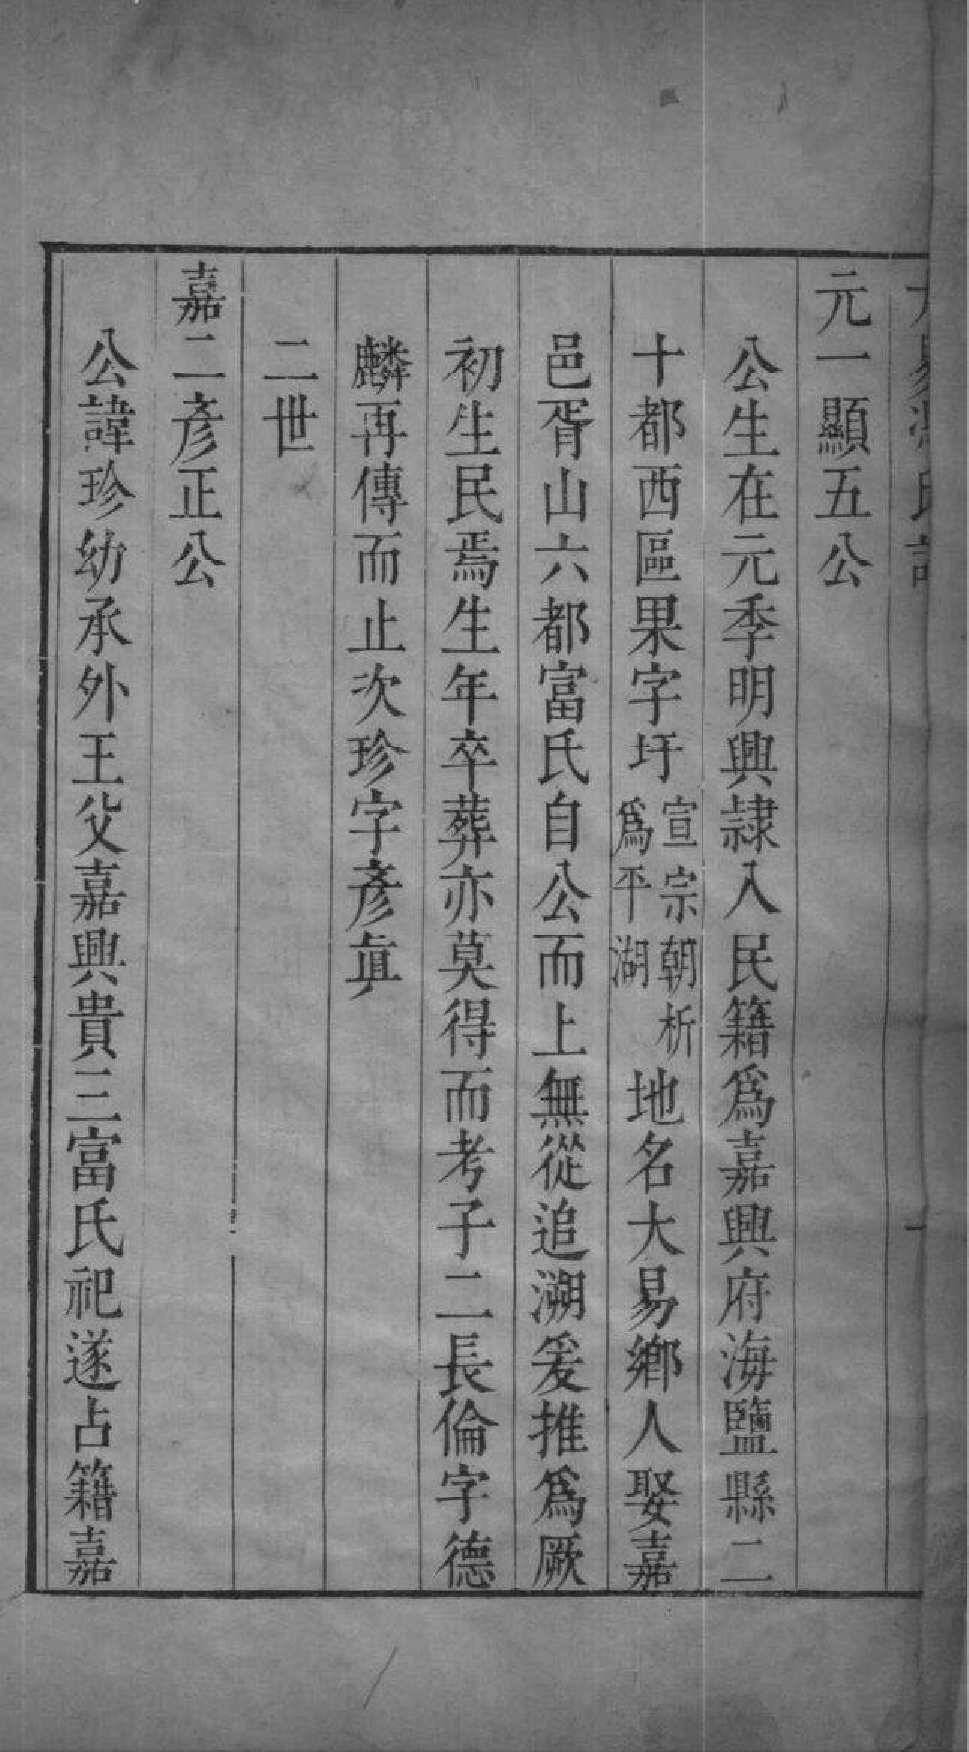 元一顯五公
公生在元季明興隷入民籍爲嘉興府海鹽縣二
十都西區果字圩宣宗朝析爲平湖地名大易鄉人娶嘉
邑胥山六都富氏自公而上無從追溯爰推爲厥
初生民焉生年卒葬亦莫得而考子二長倫字德
麟再傳而止次珍字彥眞
二世
嘉二彥正公
公諱珍幼承外王父嘉興貴三富氏祀遂占籍嘉